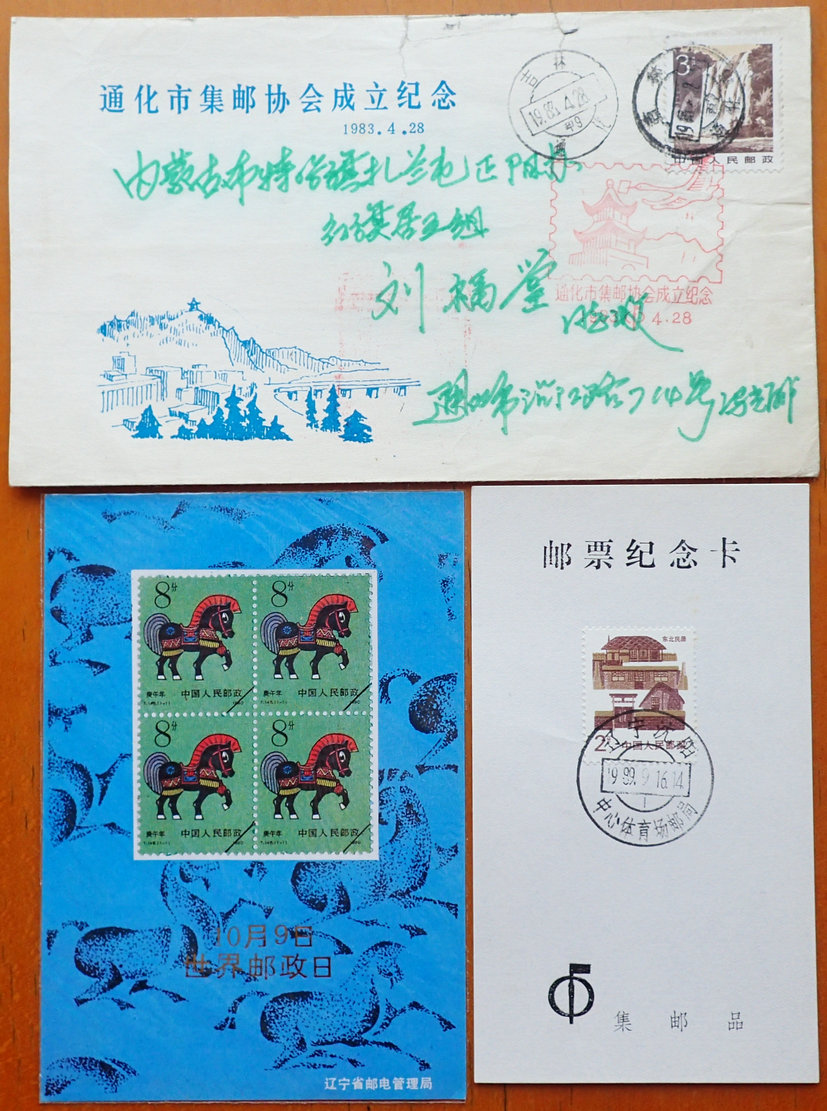 通化市集邮协会成立纪念
1983.4.28
吉林
1983.4.28
3
中国人民邮政
内蒙古布特哈旗扎兰屯正阳
红旗居五组
刘福堂
通化市集邮协会成立纪念
4.28
8分
8分
庚午年 中国人民邮政
庚午年 中国人民邮政
1990
1990
8分
8分
庚午年 中国人民邮政
庚午年 中国人民邮政
1990
1990
10月9日
世界邮政日
辽宁省邮电管理局
邮票纪念卡
东北民居
2分 中国人民邮政
辽宁沈阳
1989.9.16.14
中心体育场邮局
集邮品